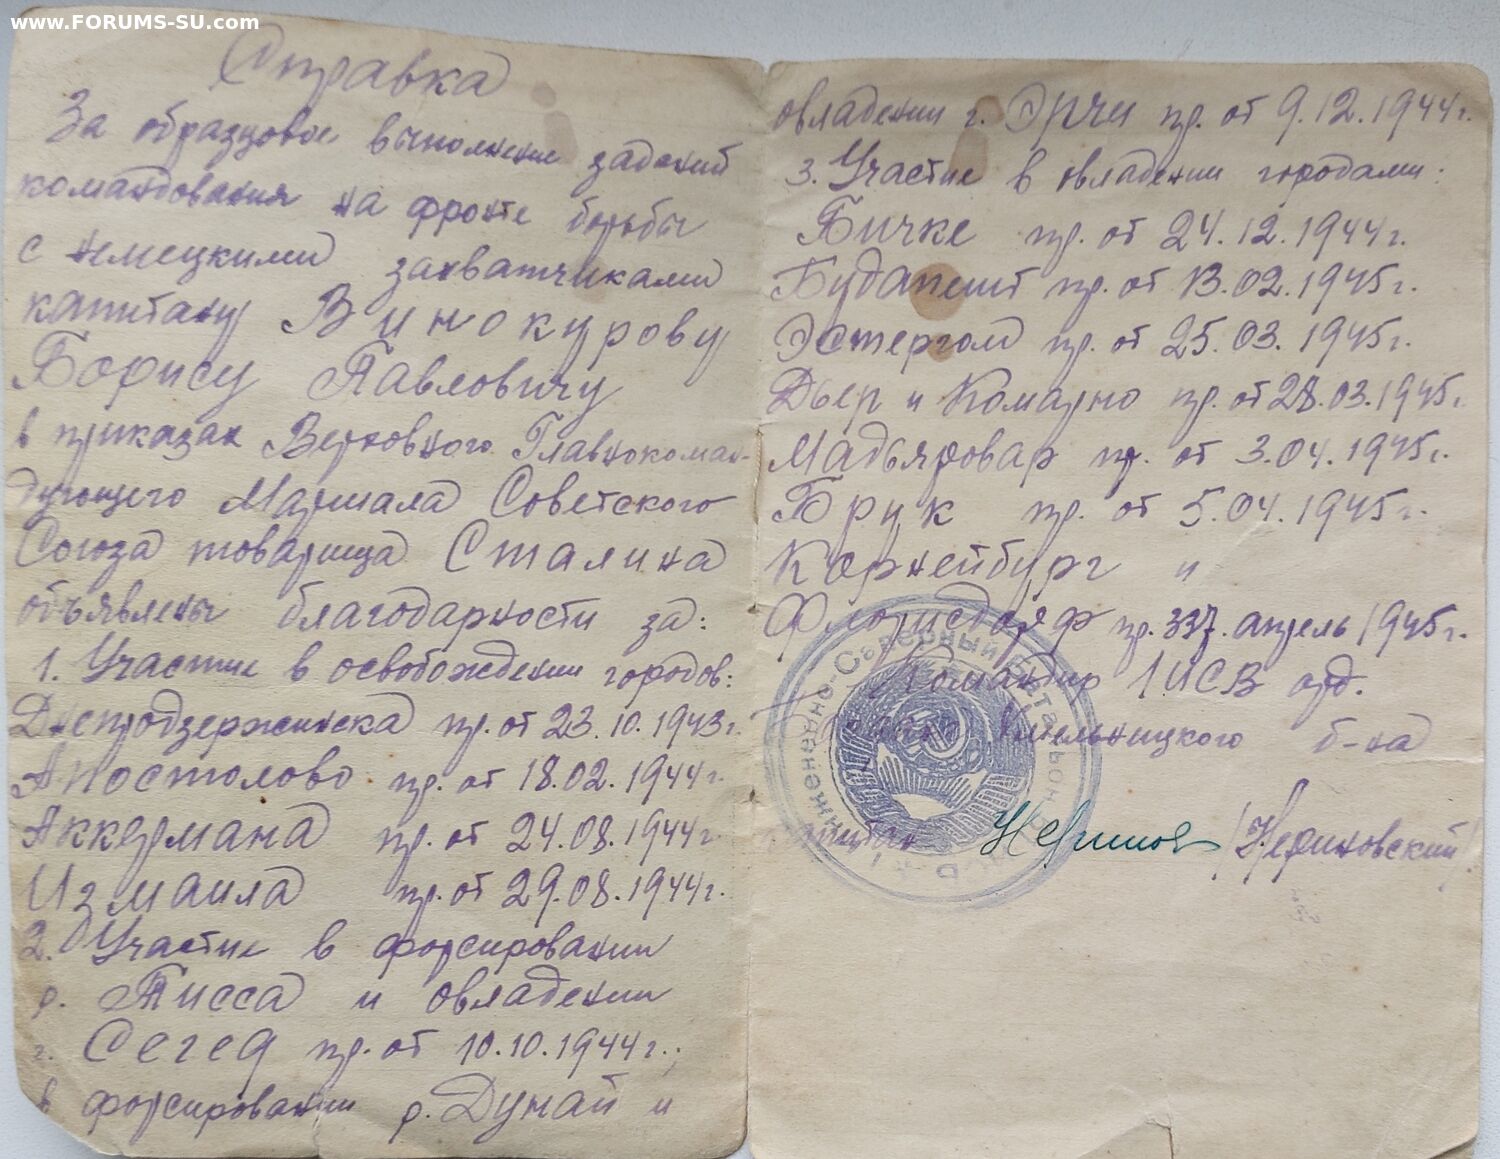 www.FORUMS-SU.com
Справка
За образцовое выполнение заданий
командования на фронте борьбы
с немецкими захватчиками
капитану Винокурову
Борису Павловичу
в приказах Верховного Главнокоман-
дующего Маршала Советского
Союза товарища Сталина
объявлены благодарности за:
1. Участие в освобождении городов:
Днепродзержинска пр. от 23.10.1943г.
Апостолово пр. от 18.02.1944г.
Аккермана пр. от 24.08.1944г
Измаила пр. от 29.08.1944г.
2. Участие в форсировании
р. Тисса и овладении
г. Сегед пр. от 10.10.1944г.;
в форсировании р. Дунай и
овладении г. Эрчи пр. от 9.12.1944г.
3. Участие в овладении городами:
Бичке пр. от 24.12.1944г.
Будапешт пр. от 13.02.1945г.
Эстергом пр. от 25.03.1945г.
Дьер и Комарно пр. от 28.03.1945г.
Мадьяровар пр. от 3.04.1945г.
Брук пр. от 5.04.1945г.
Корнейбург и
Флорисдорф пр. 337. апрель 1945г.
Командир 1 ИСВ орд.
Хмельницкого б-на
/Нериновский/